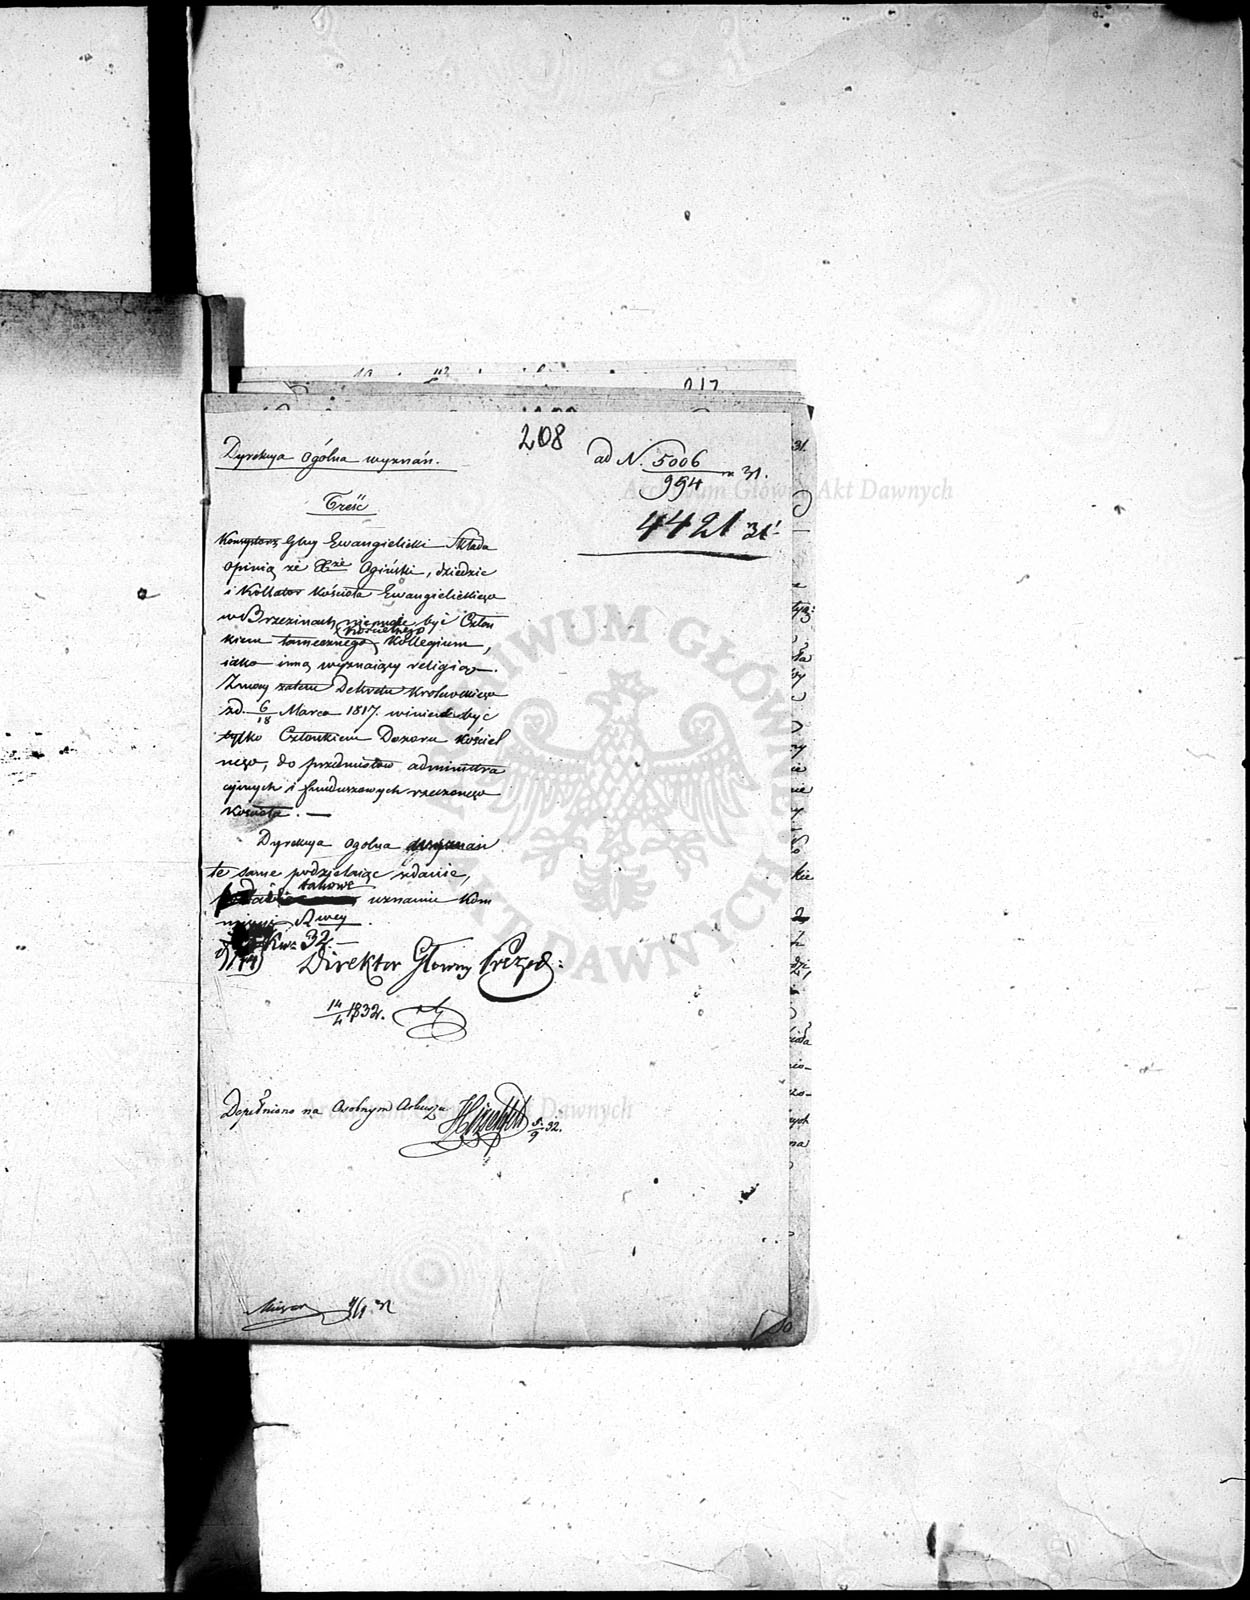 208
Dyrekcya Ogólna wyznań.
ad N. 5006
994 r. 31.
4421 31
Treść
Konsystorz Głny Ewangielicki składa
opinią że Xże Ogiński, dziedzic
i Kollator Kościoła Ewangielickiego
w Brzezinach, niemoże być Człon
kościelnego
kiem tamecznego Kollegium,
iako inną wyznaiący religią.
Z mocy zatem Dekretu Królewskiego
z d. 6/18 Marca 1817. winien być
tylko Członkiem Dozoru Kościel
nego, do przedmiotów administra
cyjnych i funduszowych rzeczonego
Kościoła. —
Dyrekcya Ogólna wyznań
te same podzielaiąc zdanie,
takowe
uznaniu Kom
missyi Rwey.
Kw. 32.
Direktor Głowny Prezed:
14/4 1832.
Dopełniono na Osobnym Arkuszu
5/9 32.
ARCHIWUM GŁÓWNE AKT DAWNYCH
Archiwum Główne Akt Dawnych
Archiwum Główne Akt Dawnych